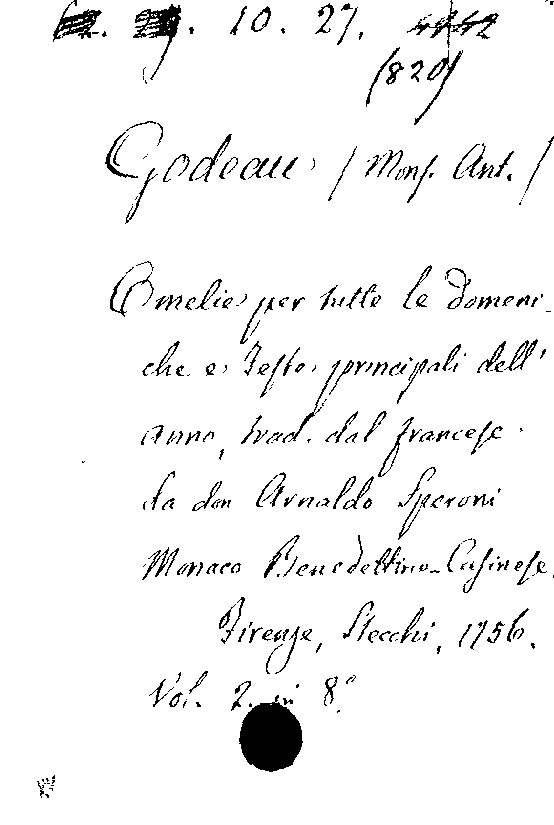 10. 27.
(820)
Godeau (Mons. Ant.)
Omelie per tutte le Domeni-
che e Feste principali dell'
anno, trad. dal francese
da don Arnaldo Speroni
Monaco Benedettino-Casinese.
Firenze, Stecchi, 1756.
Vol. 2. in 8.°